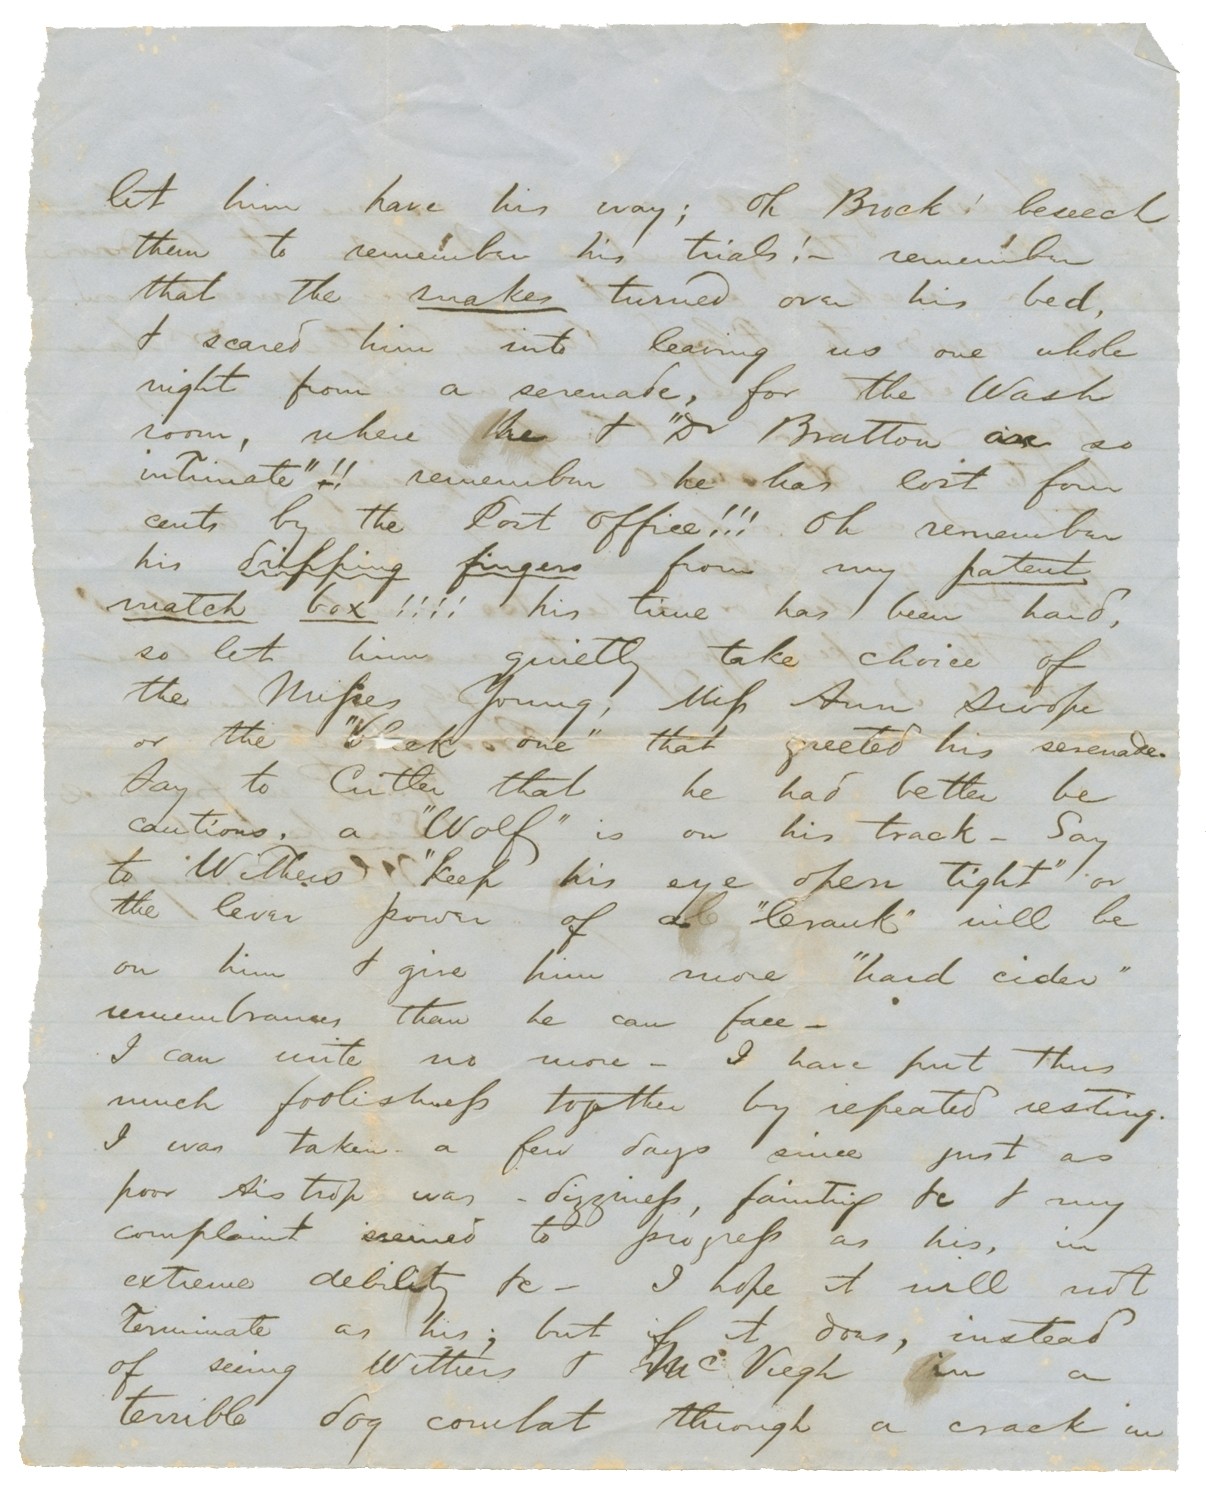 let him have his way; Oh Brock! beseech
them to remember his trials!- remember
that the snakes turned over his bed,
& scared him into leaving us one whole
night from a serenade, for the Wash
room, where he & "Dr Bratton are so
intimate"!! remember he has lost four
cents by the Post Office!!! Oh remember
his dripping fingers from my patent
match box!!!! his time has been hard,
so let him quietly take choice of
the Misses Young, Miss Ann Swope
or the "black one" that greeted his serenade.
Say to Cutler that he had better be
cautious. a "Wolf" is on his track - Say
to Withers "keep his eye open tight" or
the lever power of a "Crank" will be
on him & give him more "hard cider"
remembrances than he can face -
I can write no more - I have put thus
much foolishness together by repeated resting.
I was taken a few days since just as
poor was - dizziness, fainting &c & my
complaint seemed to progress as his, in
extreme debility &c - I hope it will not
terminate as his; but if it does, instead
of seeing Withers & McVeigh in a
terrible dog combat through a crack in